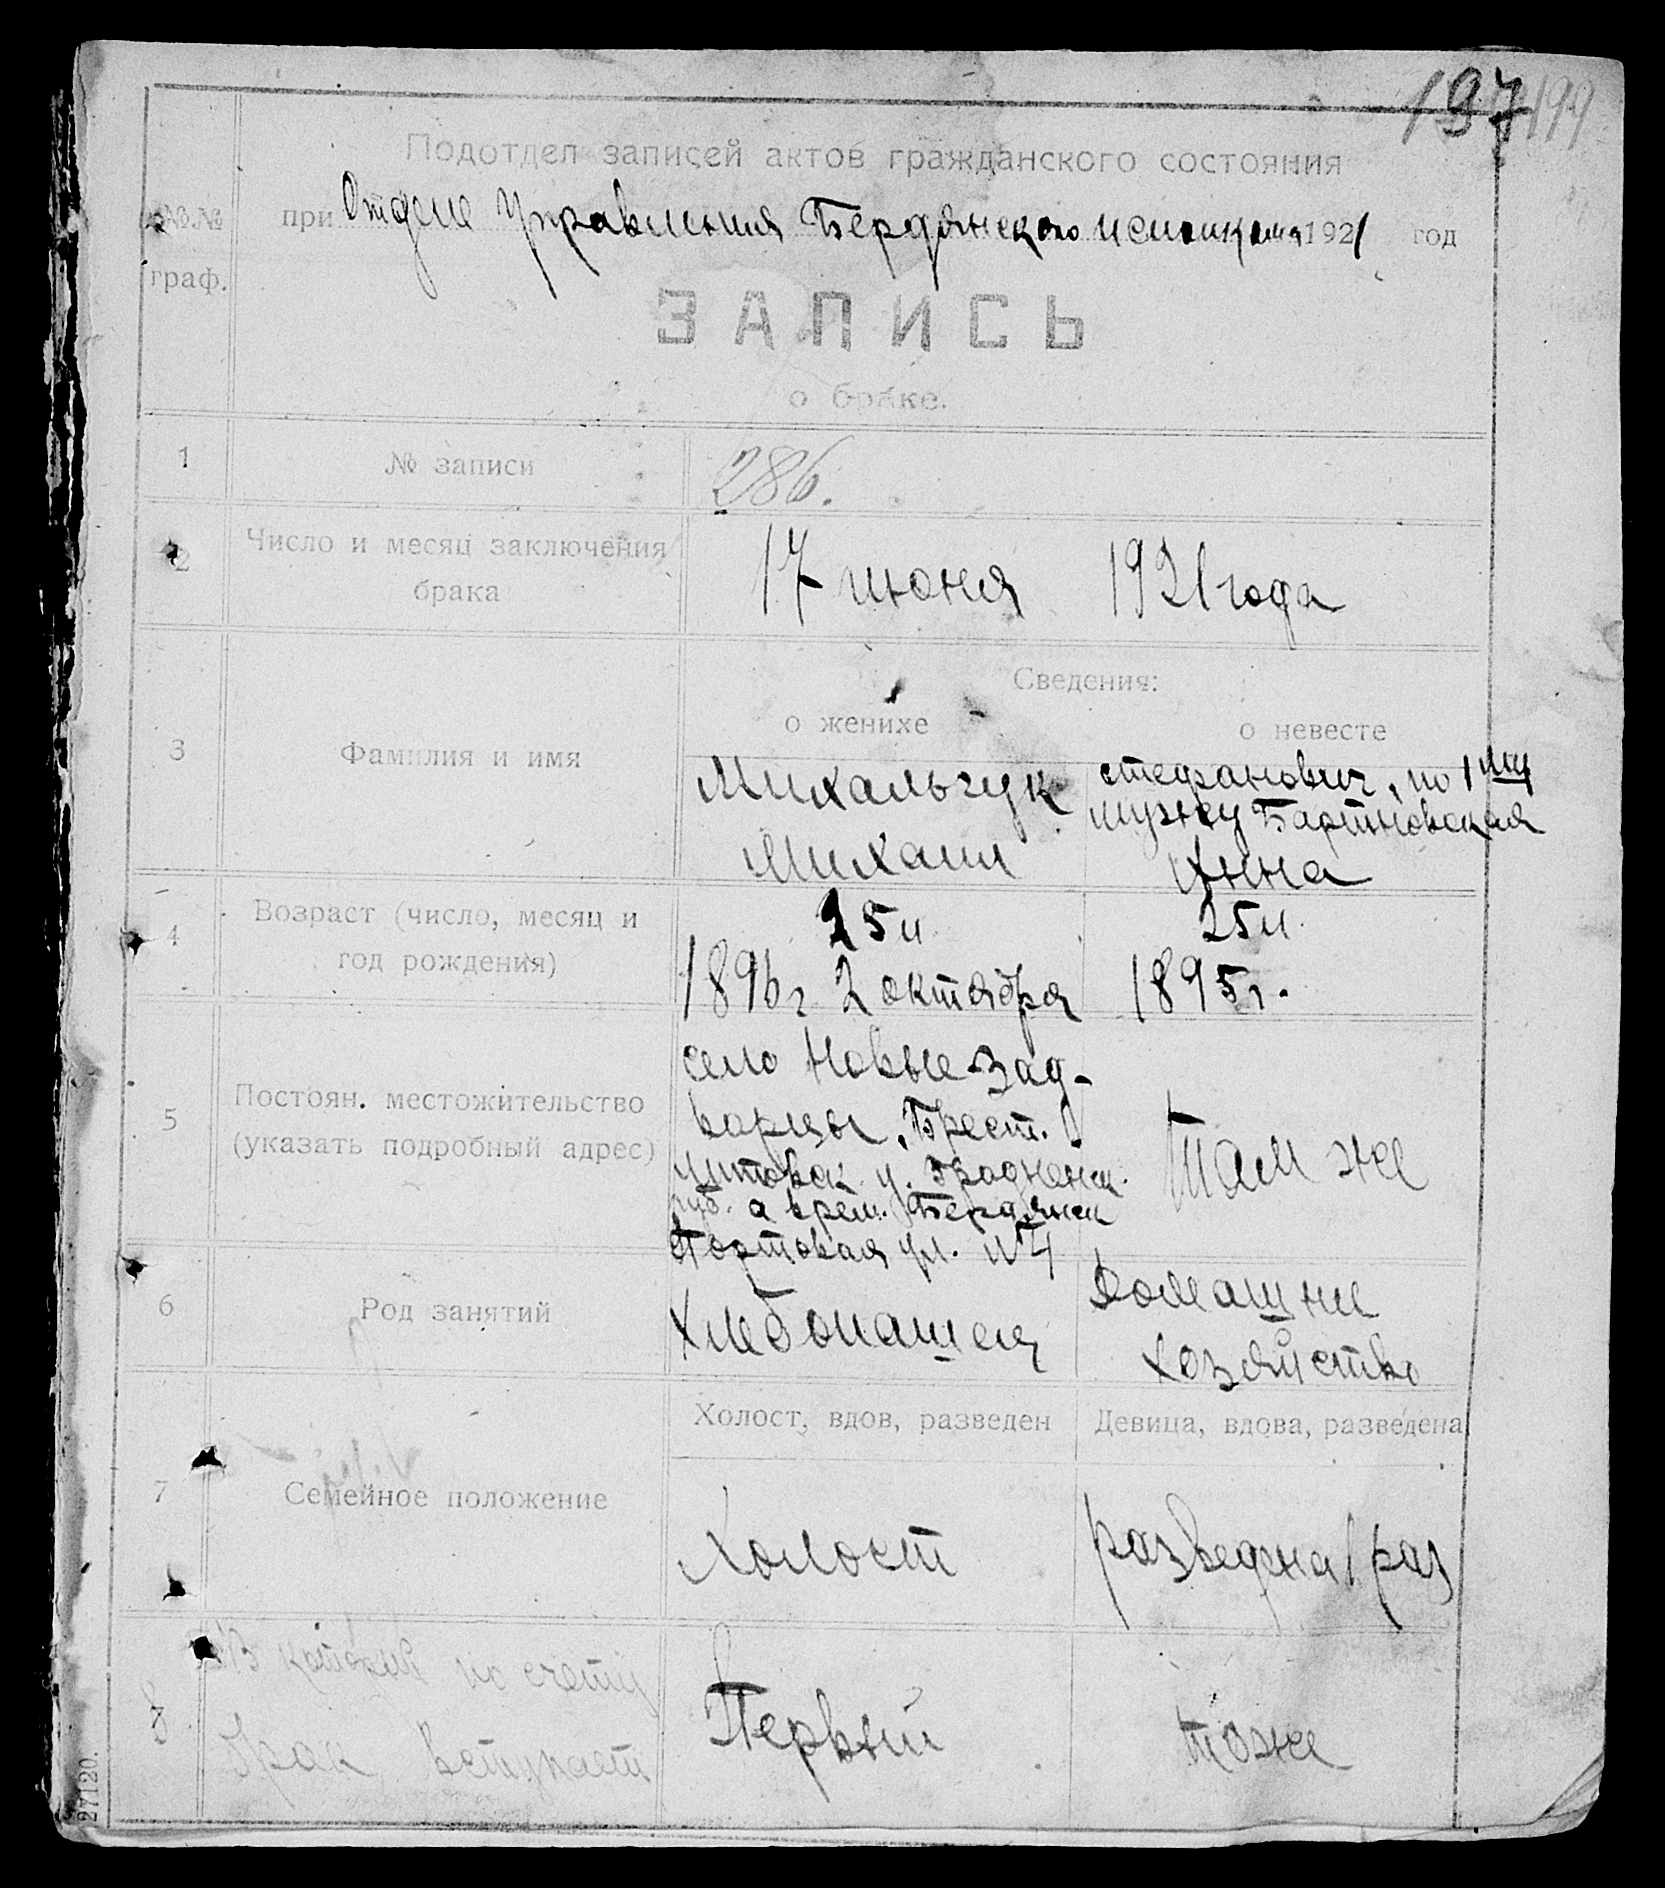 197 199
Подотдел записей актов гражданского состояния
№№ граф.
при Отделе Управления Бердянского исполкома 1921 год
ЗАПИСЬ
о браке.
1 № записи 286.
2 Число и месяц заключения
брака
17 июня 1921 года
Сведения:
о женихе о невесте
3 Фамилия и имя
Михальчук
Михаил
Стефанович, по 1му
мужу Бартновская
Анна
4 Возраст (число, месяц и
год рождения)
25 л
1896 г 2 октября
25 л.
1895 г.
5 Постоян. местожительство
(указать подробный адрес)
село Новые Зад-
ворцы, Брест.
Литовск. у. Гродненск.
губ. а врем. Бердянск
Портовая ул. № 4
Там же
6 Род занятий
Хлебопашец
Домашнее
хозяйство
Холост, вдов, разведен Девица, вдова, разведена
7 Семейное положение
Холост
разведена 1 раз
8 В который по счету
брак вступает
Первый
тоже
27120.